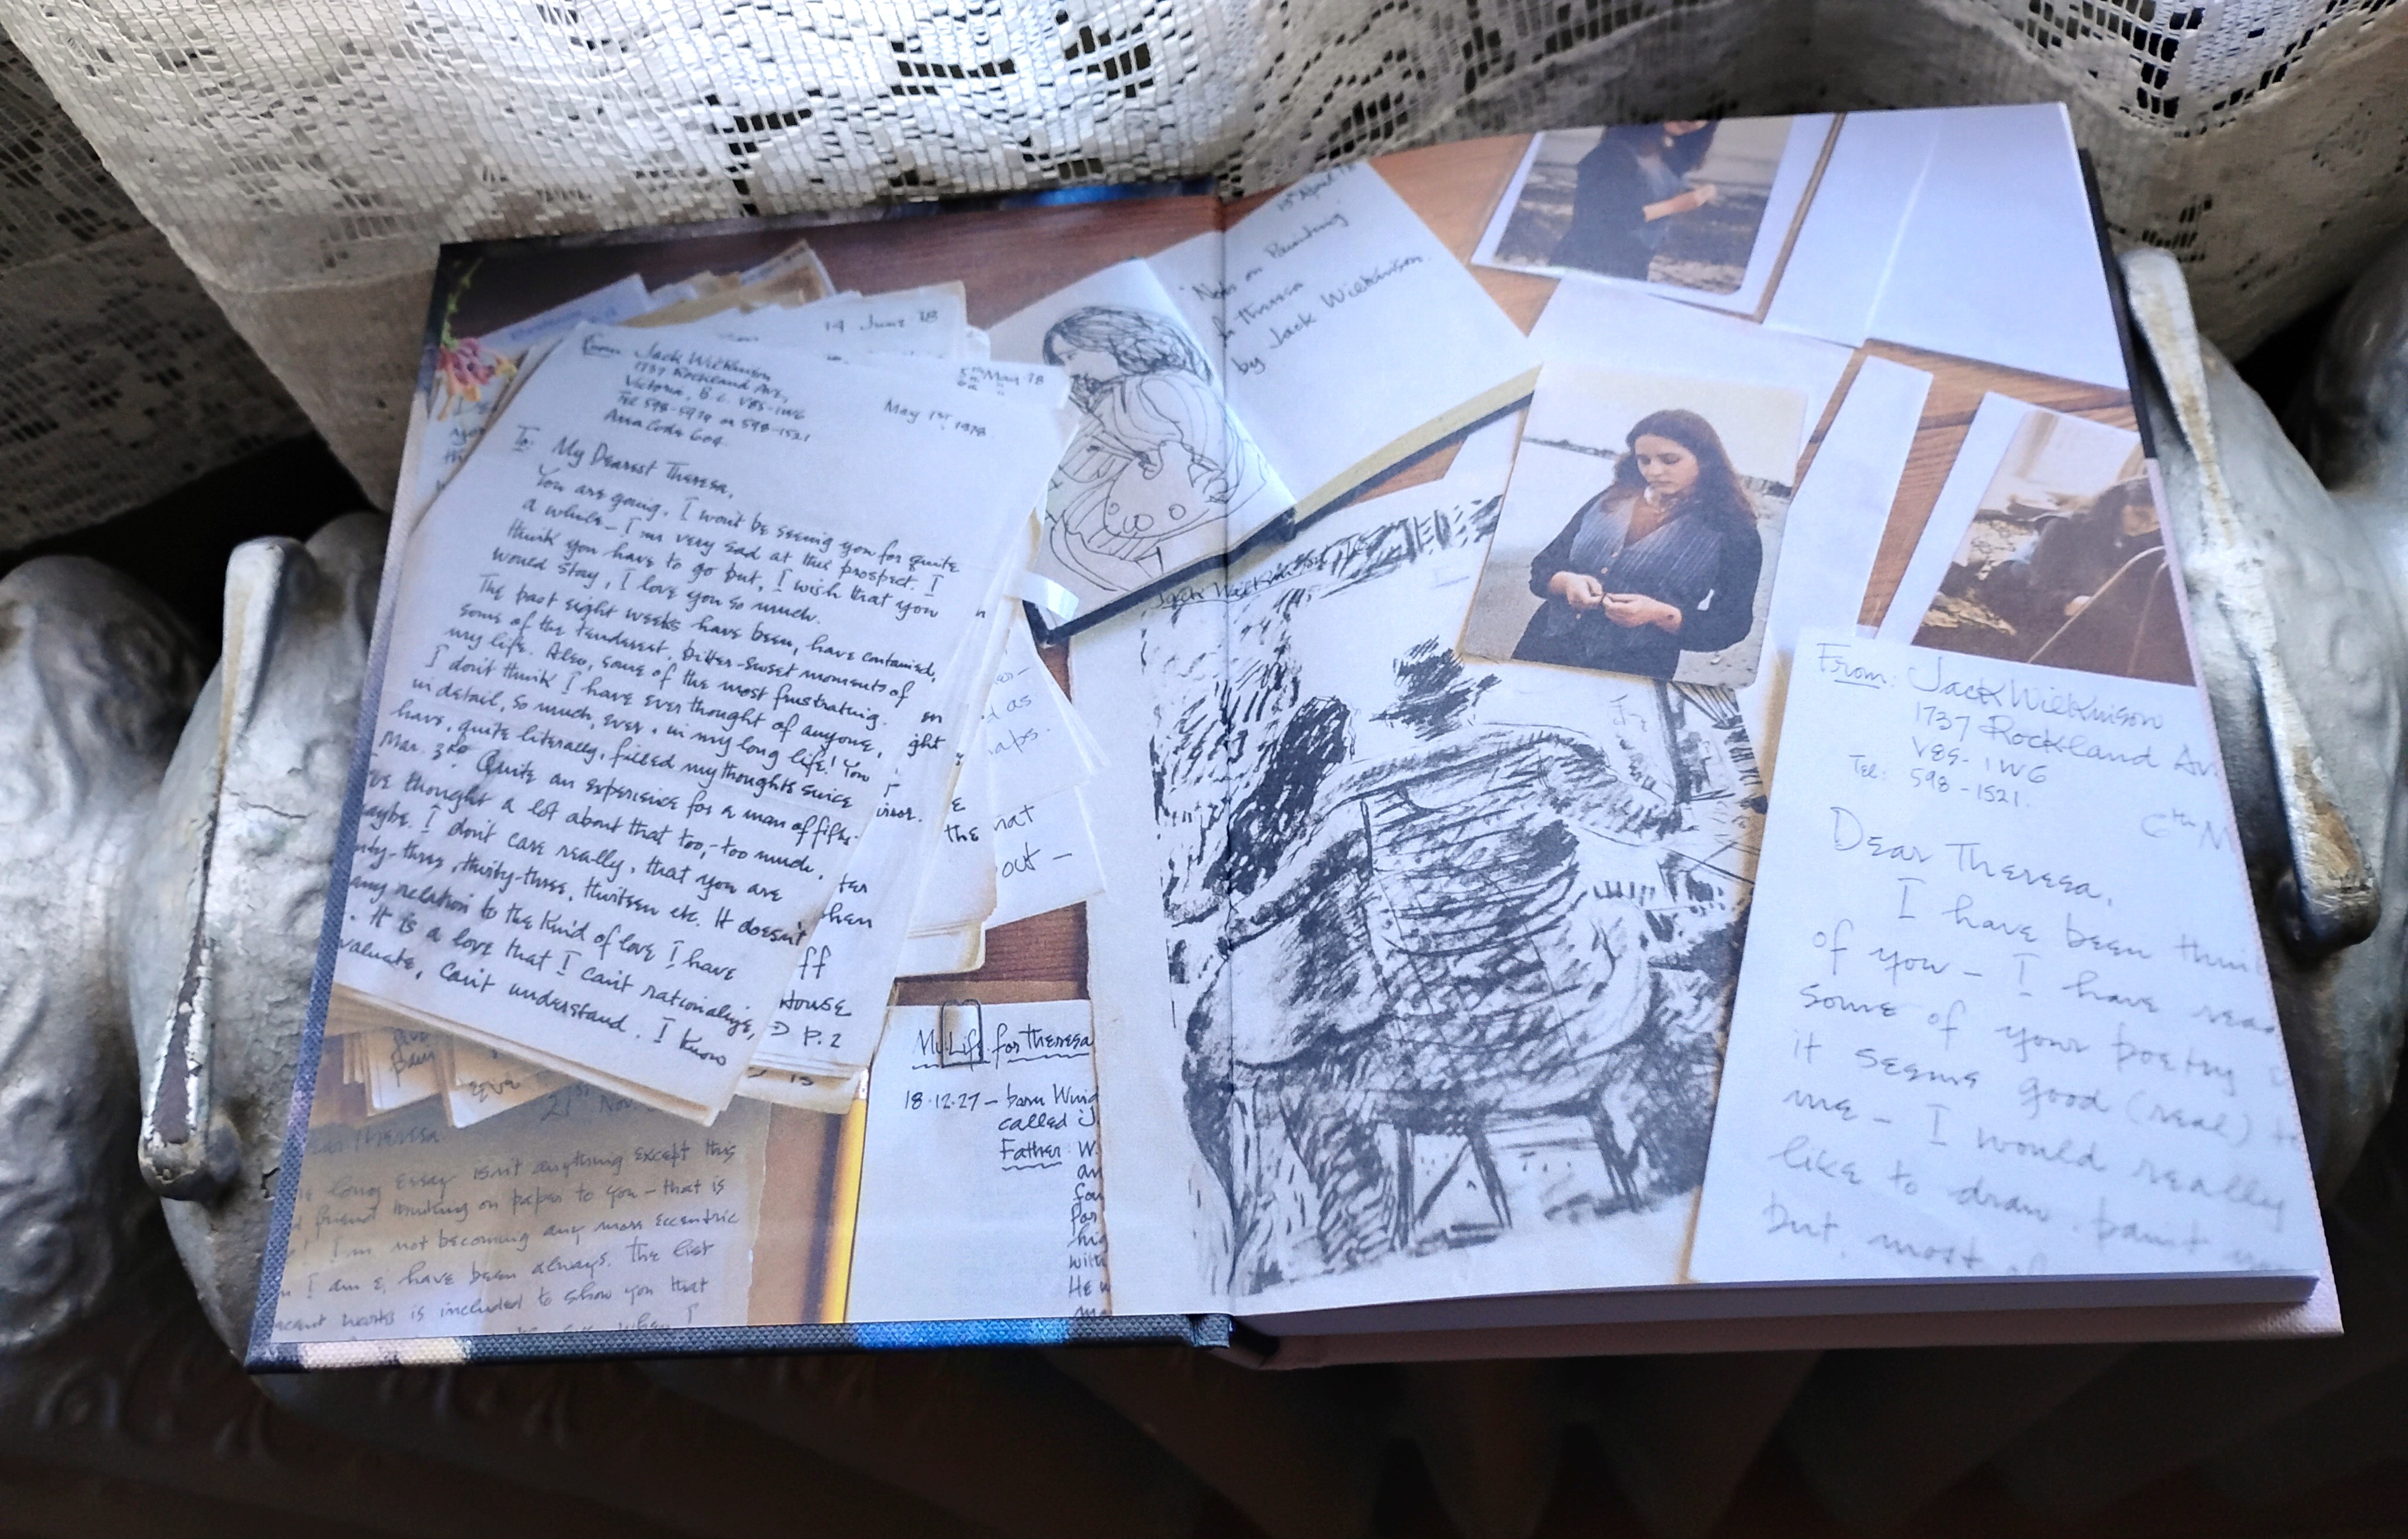 14 June 78
From: Jack Wilkinson
1737 Rockland Ave,
Victoria, B.C. V8S-1W6
Tel 598-5979 or 598-1521
Area Code 604.
5th May 78
May 1st, 1978.
To: My Dearest Theresa,
You are going, I won't be seeing you for quite
a while – I'm very sad at this prospect. I
think you have to go but, I wish that you
would stay, I love you so much.
The past eight weeks have been, have contained,
some of the tenderest, bitter-sweet moments of
my life. Also, some of the most frustrating.
I don't think I have ever thought of anyone,
in detail, so much, ever, in my long life! You
have, quite literally, filled my thoughts since
Mar. 3rd. Quite an experience for a man of fifty.
've thought a lot about that too, – too much,
aybe. I don't care really, that you are
nty-three, thirty-three, thirteen etc. It doesn't
any relation to the kind of love I have
. It is a love that I can't rationalize,
valuate, can't understand. I know
ght
the
House
P. 2
as
hat
out –
21st Nov.
ear Theresa
long essay isn't anything except this
friend thinking on paper to you – that is
I'm not becoming any more eccentric
n I am &, have been always. The list
ecent works is included to show you that
when I
My Life for Theresa
18.12.27 – born Wind
called J
Father W.
an
fou
Par
hig
with
He w
Notes on Painting
for Theresa
by Jack Wilkinson.
Jack Wilkinson
From: Jack Wilkinson
1737 Rockland Av
V8S-1W6
Tel: 598-1521.
6th M
Dear Theresa,
I have been thin
of you – I have read
some of your poetry
it seems good (real) to
me – I would really
like to draw, paint you
but, most of